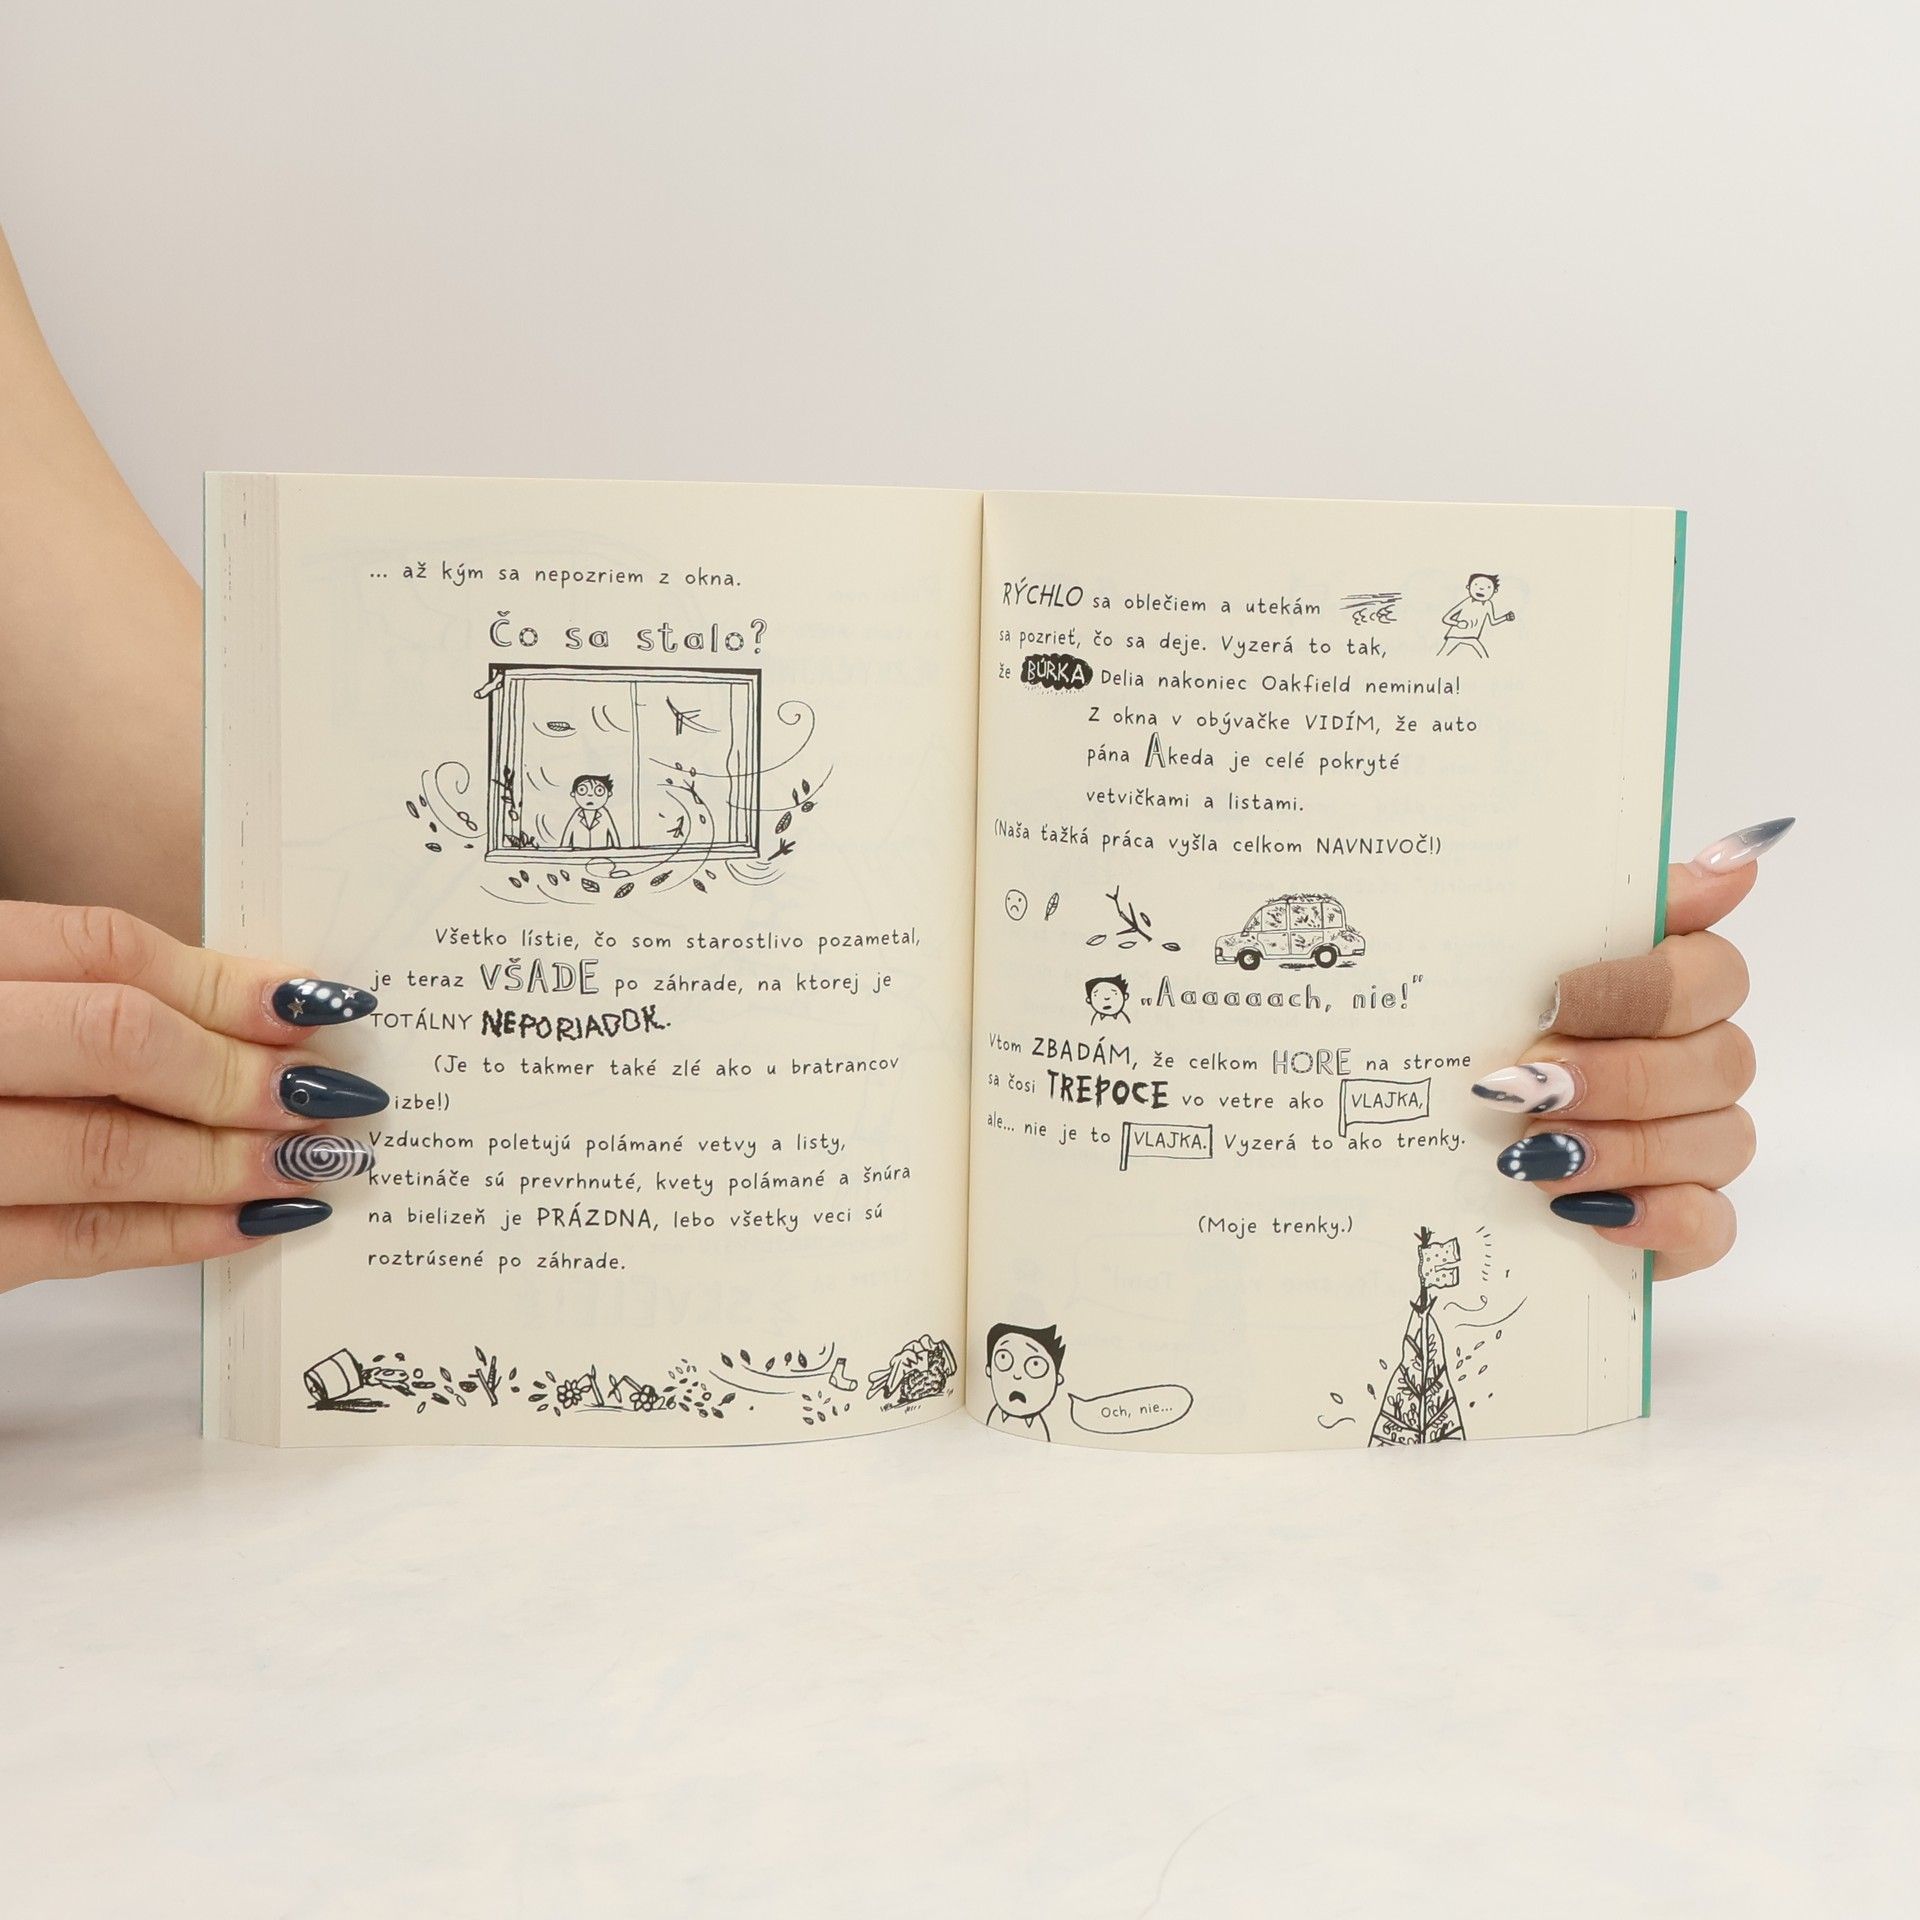 ... až kým sa nepozriem z okna.
Čo sa stalo?
Všetko lístie, čo som starostlivo pozametal,
je teraz VŠADE po záhrade, na ktorej je
TOTÁLNY NEPORIADOK.
(Je to takmer také zlé ako u bratrancov
izbe!)
Vzduchom poletujú polámané vetvy a listy,
kvetináče sú prevrhnuté, kvety polámané a šnúra
na bielizeň je PRÁZDNA, lebo všetky veci sú
roztrúsené po záhrade.
26
RÝCHLO sa oblečiem a utekám
sa pozrieť, čo sa deje. Vyzerá to tak,
že BÚRKA Delia nakoniec Oakfield neminula!
Z okna v obývačke VIDÍM, že auto
pána Akeda je celé pokryté
vetvičkami a listami.
(Naša ťažká práca vyšla celkom NAVNIVOČ!)
„Aaaaaach, nie!"
Vtom ZBADÁM, že celkom HORE na strome
sa čosi TREPOCE vo vetre ako VLAJKA,
ale... nie je to VLAJKA. Vyzerá to ako trenky.
(Moje trenky.)
Och, nie...